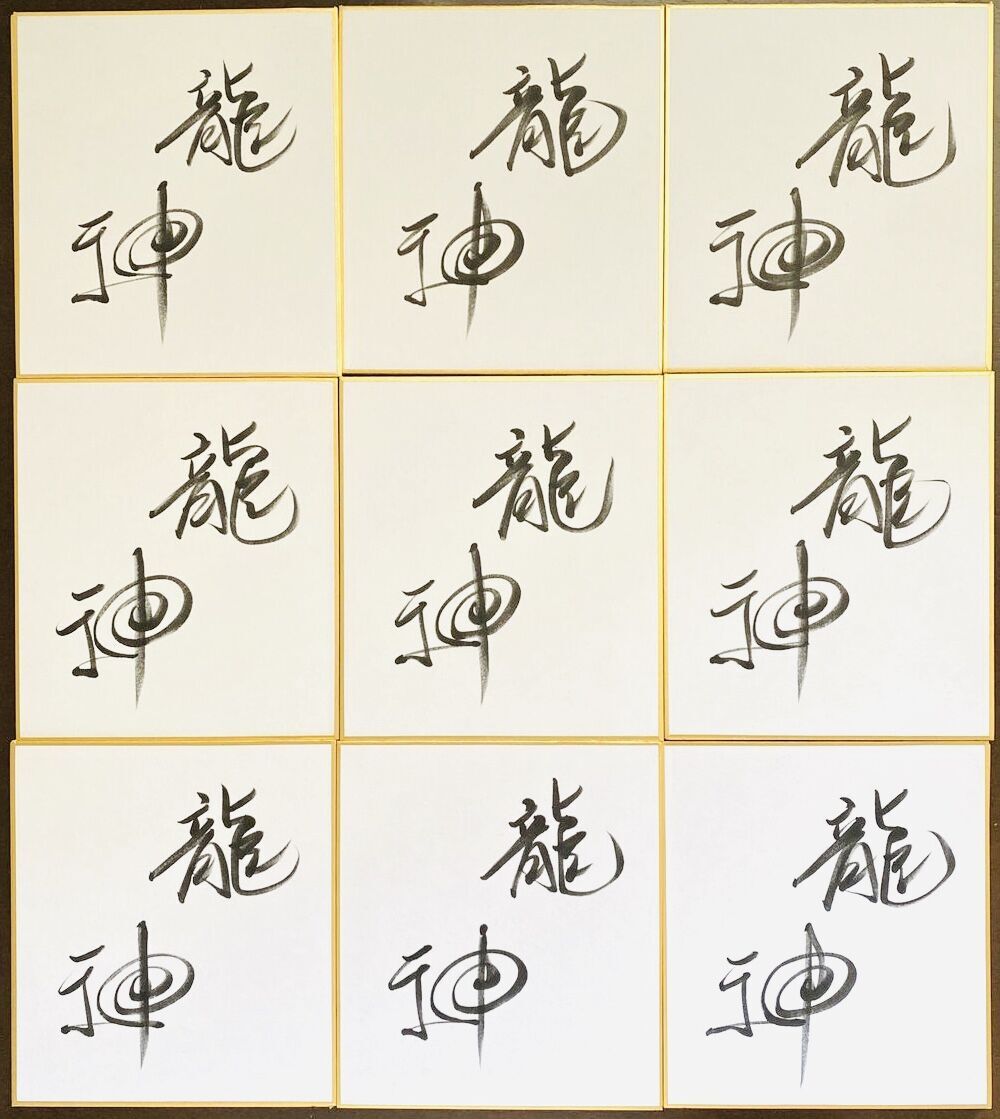 龍神
龍神
龍神
龍神
龍神
龍神
龍神
龍神
龍神